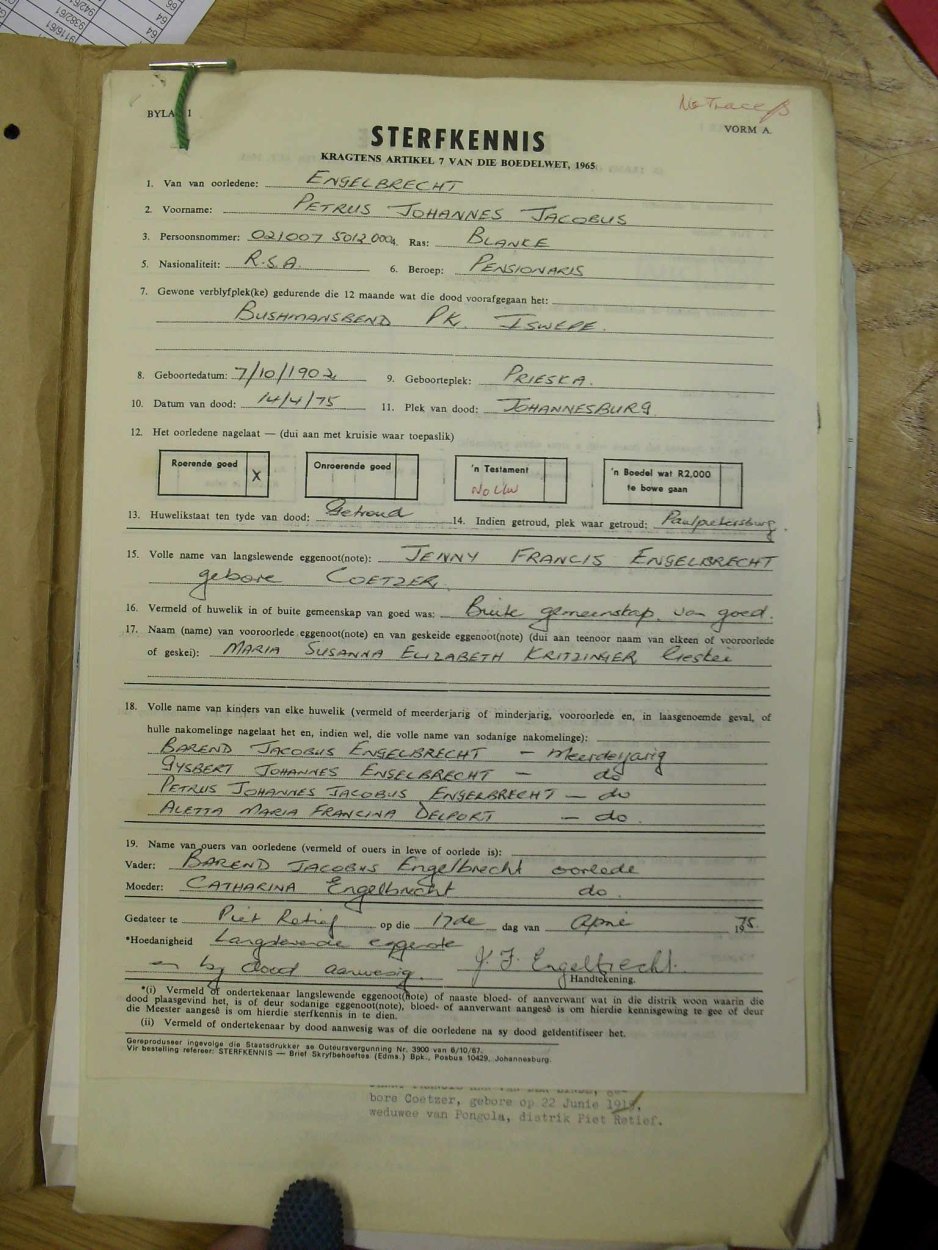 9116/61
9382/61
942/61
64
BYLA 1
No Trace
STERFKENNIS
VORM A.
KRAGTENS ARTIKEL 7 VAN DIE BOEDELWET, 1965
1. Van van oorledene: ENGELBRECHT
2. Voorname: PETRUS JOHANNES JACOBUS
3. Persoonsnommer: 021007 5012 004. Ras: BLANKE
5. Nasionaliteit: R.S.A. 6. Beroep: PENSIONARIS
7. Gewone verblyfplek(ke) gedurende die 12 maande wat die dood voorafgegaan het:
BUSHMANSBEND PK. ISWEPE.
8. Geboortedatum: 7/10/1902 9. Geboorteplek: PRIESKA.
10. Datum van dood: 14/4/75 11. Plek van dood: JOHANNESBURG
12. Het oorledene nagelaat — (dui aan met kruisie waar toepaslik)
Roerende goed X Onroerende goed 'n Testament 'n Boedel wat R2,000
te bowe gaan
13. Huwelikstaat ten tyde van dood: Getroud 14. Indien getroud, plek waar getroud: Paulpietersburg.
15. Volle name van langslewende eggenoot(note): JENNY FRANCIS ENGELBRECHT
gebore COETZER.
16. Vermeld of huwelik in of buite gemeenskap van goed was: Buite gemeenskap van goed.
17. Naam (name) van vooroorlede eggenoot(note) en van geskeide eggenoot(note) (dui aan teenoor naam van elkeen of vooroorlede
of geskei): MARIA SUSANNA ELIZABETH KRITZINGER Geskei
18. Volle name van kinders van elke huwelik (vermeld of meerderjarig of minderjarig, vooroorlede en, in laasgenoemde geval, of
hulle nakomelinge nagelaat het en, indien wel, die volle name van sodanige nakomelinge):
BAREND JACOBUS ENGELBRECHT – Meerderjarig
GYSBERT JOHANNES ENGELBRECHT – do
PETRUS JOHANNES JACOBUS ENGELBRECHT – do
ALETTA MARIA FRANCINA DELPORT – do.
19. Name van ouers van oorledene (vermeld of ouers in lewe of oorlede is):
Vader: BAREND JACOBUS Engelbrecht oorlede
Moeder: CATHARINA Engelbrecht do.
Gedateer te Piet Retief op die 17de dag van April 1975.
*Hoedanigheid Langslewende eggenote
en by dood aanwesig. J. F. Engelbrecht.
Handtekening.
*(i) Vermeld of ondertekenaar langslewende eggenoot(note) of naaste bloed- of aanverwant wat in die distrik woon waarin die
dood plaasgevind het, is of deur sodanige eggenoot(note), bloed- of aanverwant aangesê is om hierdie kennisgewing te gee of deur
die Meester aangesê is om hierdie sterfkennis in te dien.
(ii) Vermeld of ondertekenaar by dood aanwesig was of die oorledene na sy dood geïdentifiseer het.
Gereproduseer ingevolge die Staatsdrukker se Outeursvergunning Nr. 3900 van 6/10/67.
Vir bestelling refereer: STERFKENNIS — Brief Skryfbehoeftes (Edms.) Bpk., Posbus 10429, Johannesburg.
bore Coetzer, gebore op 22 Junie
weduwee van Pongola, distrik Piet Retief.